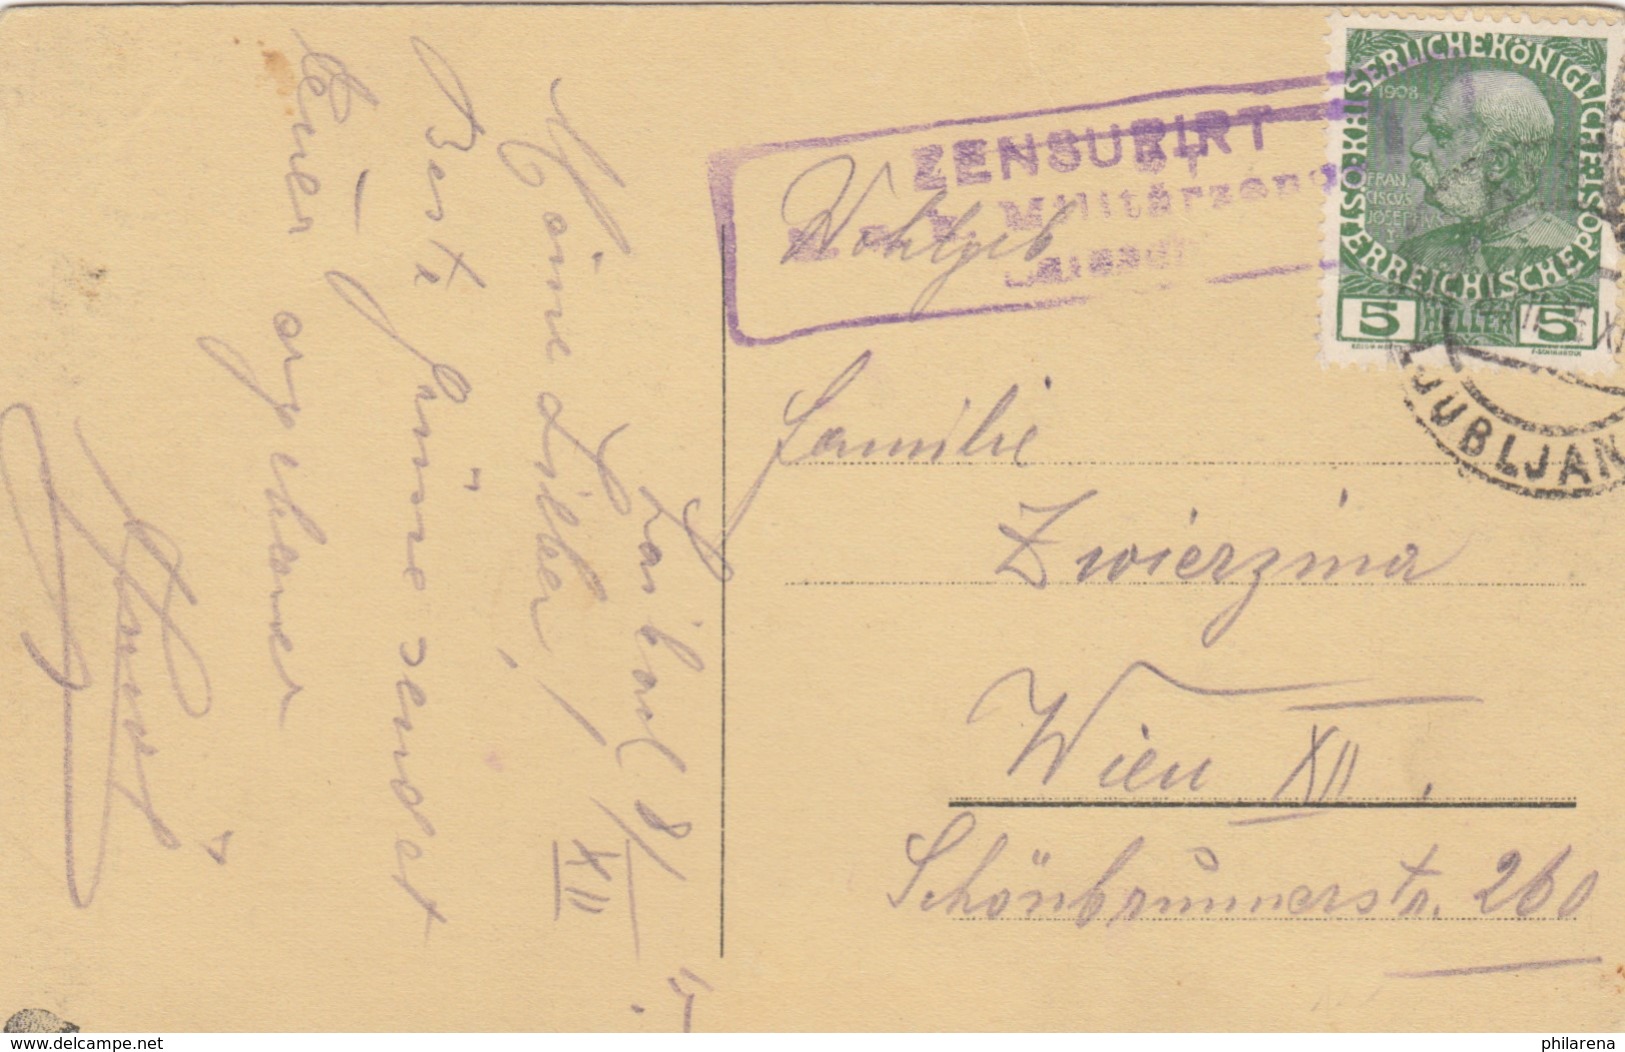 ZENSURIRT
K.u.k. Militärzens
Laibach
KAISERLICHE KÖNIGLICHE
ÖSTERREICHISCHE POST
1908
FRAN
CISCVS
JOSEPHVS
I
5 HELLER 5
LJUBLJAN
Wohlgeb
Familie
Zwierzina
Wien XII.
Schönbrunnerstr. 260
Laibach 8/XII
Meine Lieben,
Beste Grüsse sendet
Euer
www.delcampe.net
philarena